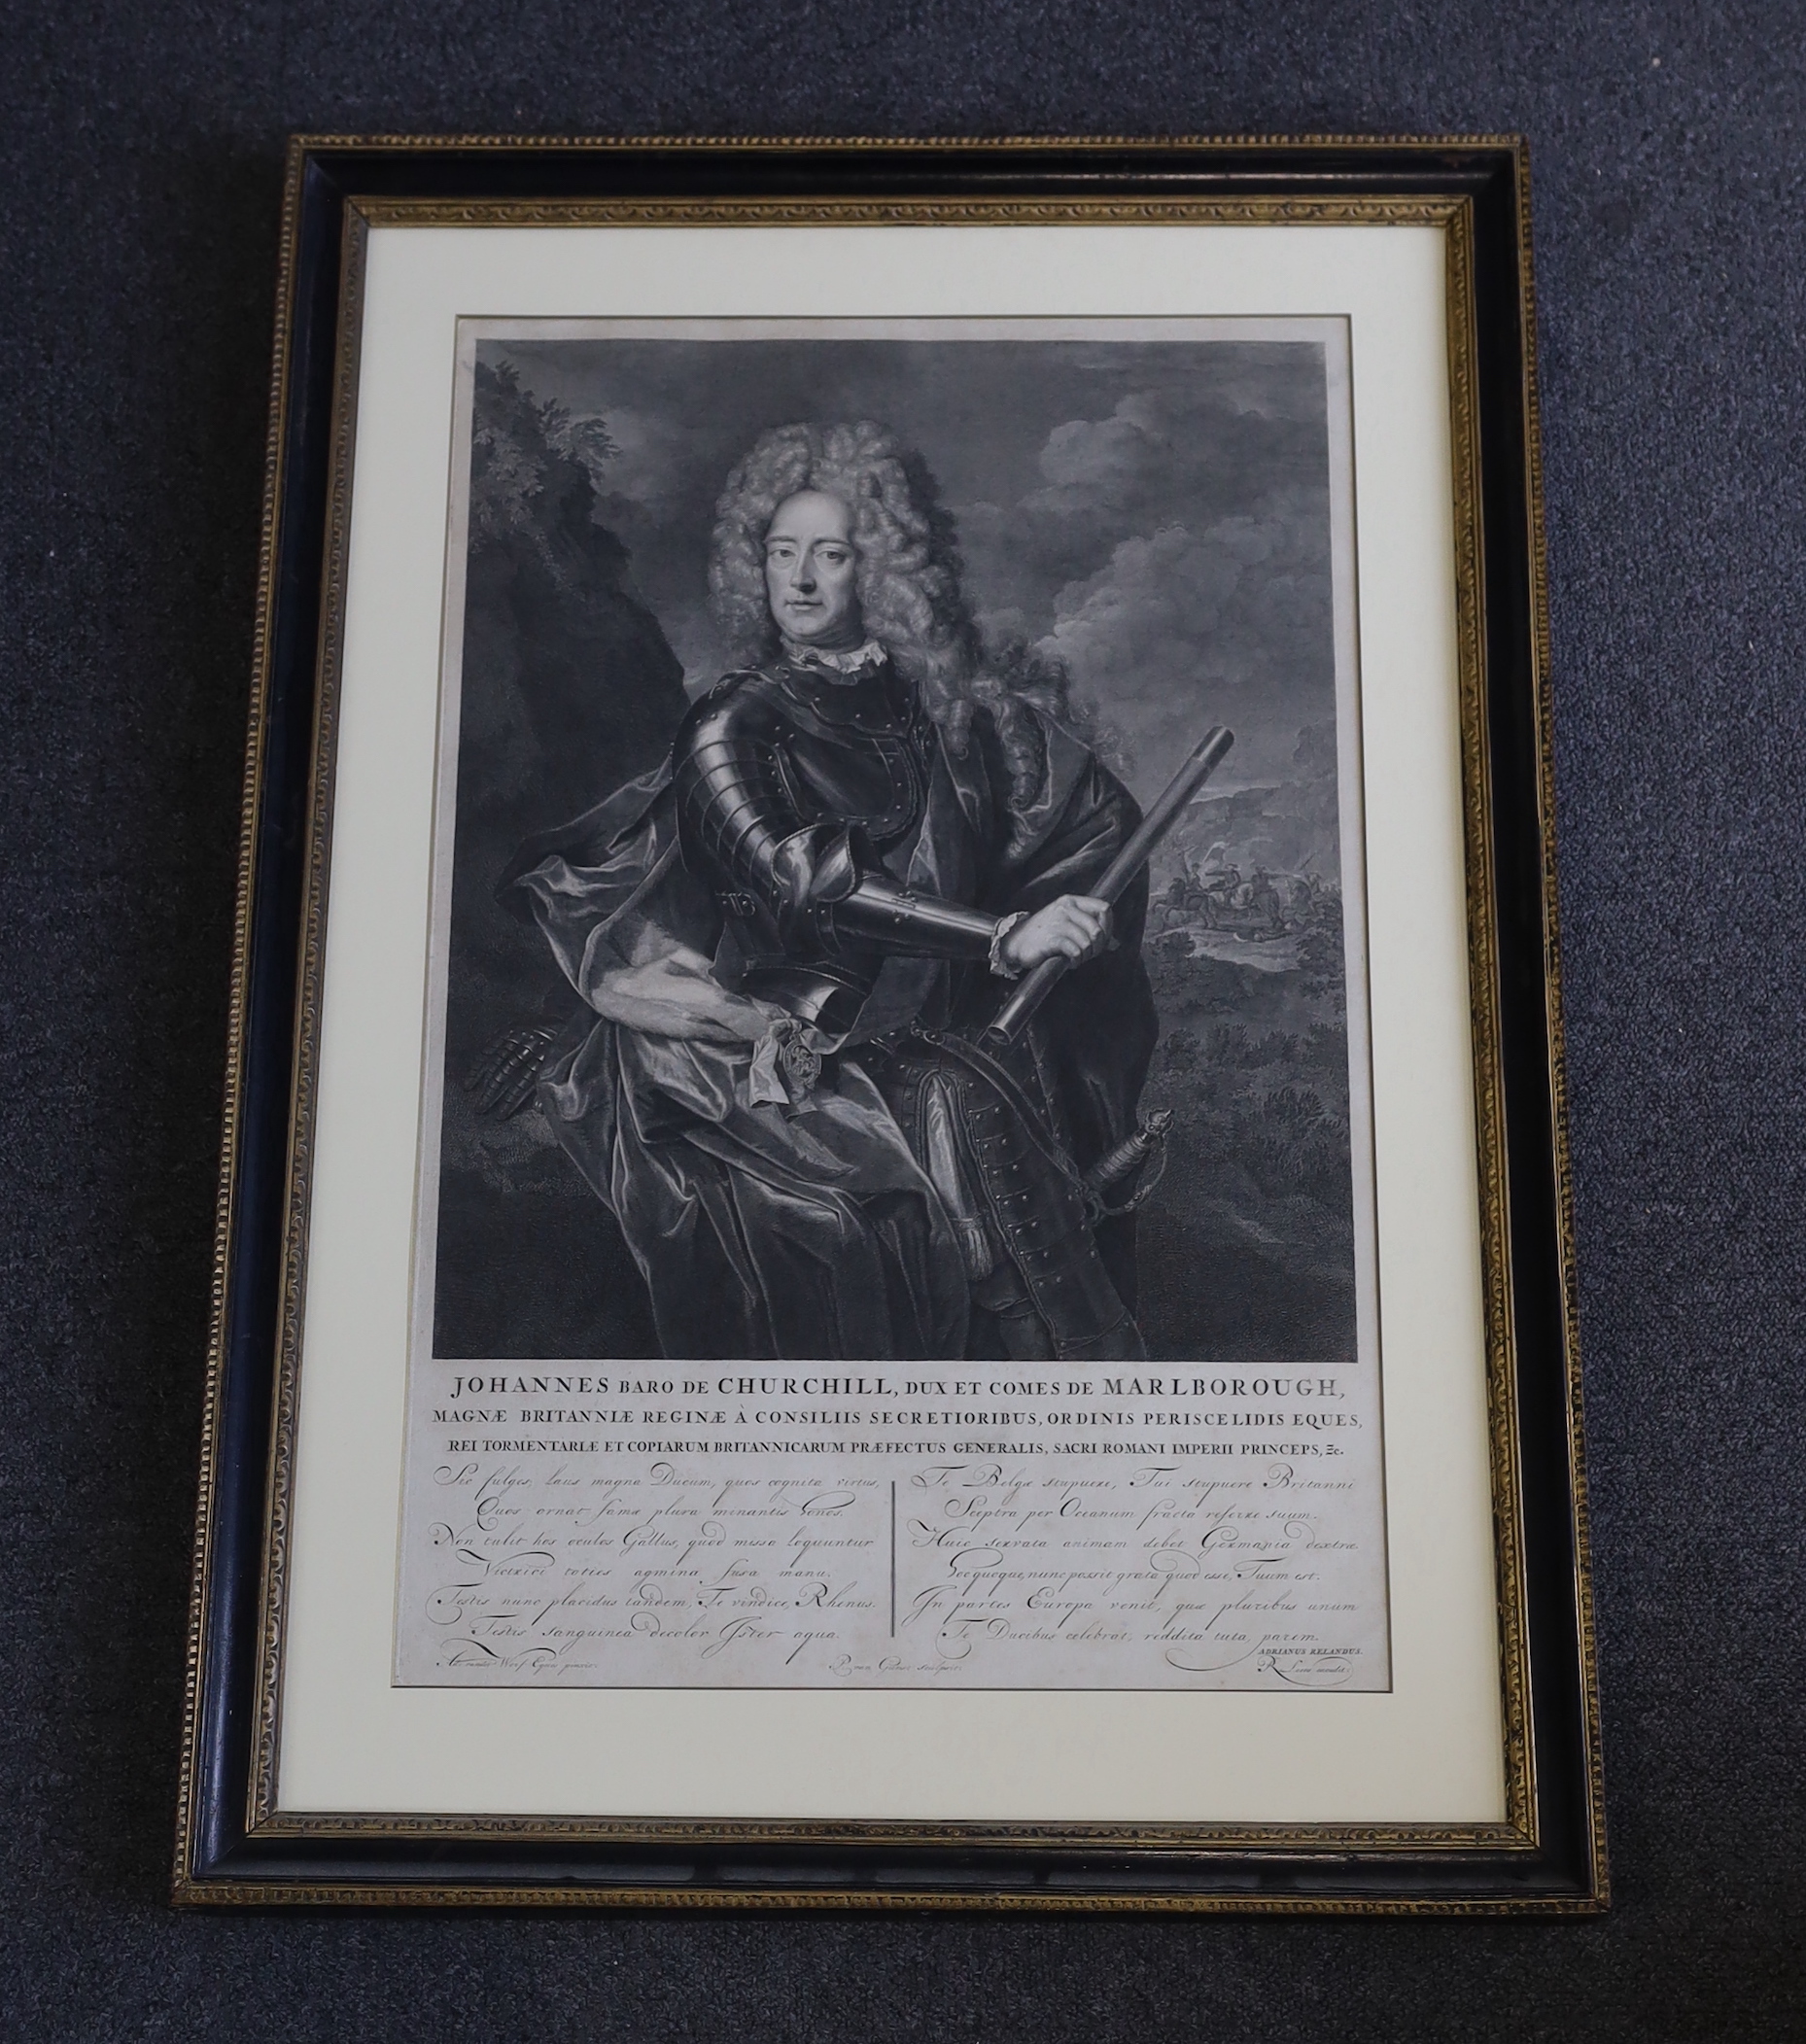 JOHANNES BARO DE CHURCHILL, DUX ET COMES DE MARLBOROUGH,
MAGNÆ BRITANNIÆ REGINÆ À CONSILIIS SECRETIORIBUS, ORDINIS PERISCELIDIS EQUES,
REI TORMENTARIÆ ET COPIARUM BRITANNICARUM PRÆFECTUS GENERALIS, SACRI ROMANI IMPERII PRINCEPS, &c.
Sic fulges, Laus magna Ducum, quos cognita virtus,
Quos ornat famæ plura minantis honos.
Non tulit hos oculos Gallus, quod missa loquuntur
Victrici toties agmina fusa manu.
Testis nunc placidus tandem, Te vindice, Rhenus.
Testis sanguinea decolor Ister aqua.
Te Belgæ stupuere, Tui stupuere Britanni
Sceptra per Oceanum fracta referre suum.
Huic servata animam debet Germania dextræ
Hoc quoque, nunc poterit grata quod esse, Tuum est.
In partes Europa venit, quæ pluribus unum
Te Ducibus celebrat, reddita tuta, parem.
ADRIANUS RELANDUS.
Werf Eques pinxit.
P. van Gunst sculpsit.